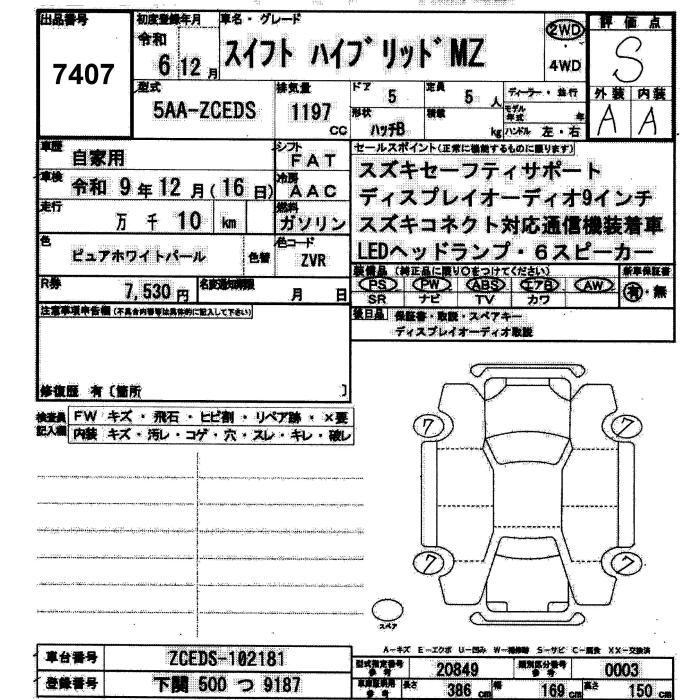 出品番号 初度登録年月 車名・グレード 評価点
7407 令和 6 12 月 スイフト ハイブリッドMZ 2WD・4WD S
型式 排気量 ドア 5 定員 5 人 ディーラー・並行 外装 内装
5AA-ZCEDS 1197 cc 形状 ハッチB 積載 kg モデル年式 年 ハンドル 左・右 A A
車歴 自家用 シフト FAT セールスポイント(正常に機能するものに限ります)
車検 令和 9 年 12 月 (16 日) 冷房 AAC スズキセーフティサポート
走行 万 千 10 km 燃料 ガソリン ディスプレイオーディオ9インチ
スズキコネクト対応通信機装着車
色 ピュアホワイトパール 色替 色コード ZVR LEDヘッドランプ・6スピーカー
R券 7,530 円 名変通知期限 月 日 装備品 (純正品に限り○をつけてください) 新車保証書
PS PW ABS エアB AW 有・無
SR ナビ TV カワ
注意事項申告欄(不具合内容等は具体的に記入して下さい) 後日品 保証書・取説・スペアキー
ディスプレイオーディオ取説
修復歴 有〔箇所 〕
検査員記入欄 FW キズ・飛石・ヒビ割・リペア跡・×要
内装 キズ・汚レ・コゲ・穴・スレ・キレ・破レ
7 7
7 7
スペア
A-キズ E-エクボ U-凹み W-補修跡 S-サビ C-腐食 XX-交換済
車台番号 ZCEDS-102181 型式指定番号 20849 類別区分番号 0003
登録番号 下関 500 つ 9187 長さ 386 cm 幅 169 cm 高さ 150 cm